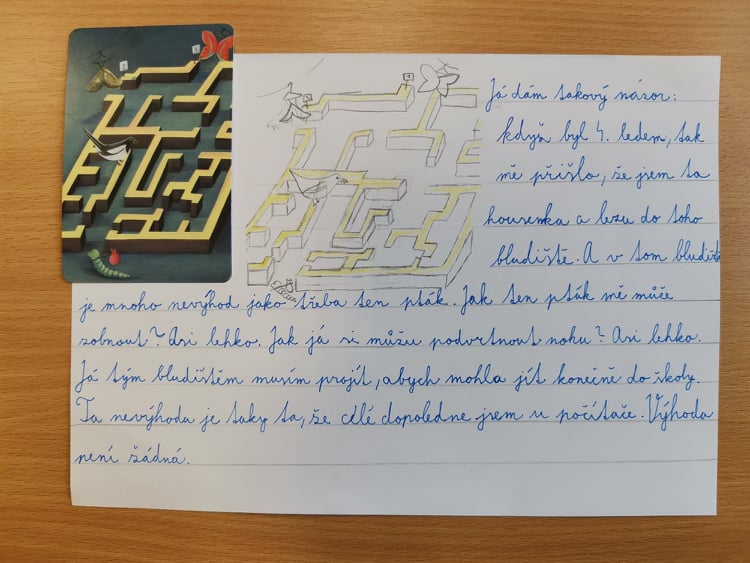 Já dám takový názor:
když byl 4. ledem, tak
mě přišlo, že jsem ta
housenka a lezu do toho
bludiště. A v tom bludišt
je mnoho nevýhod jako třeba ten pták. Jak ten pták mě může
zobnout? Asi lehko. Jak já si můžu podvrtnout nohu? Asi lehko.
Já tým bludištěm musím projít, abych mohla jít konečně do školy.
Ta nevýhoda je taky ta, že celé dopoledne jsem u počítače. Výhoda
není žádná.